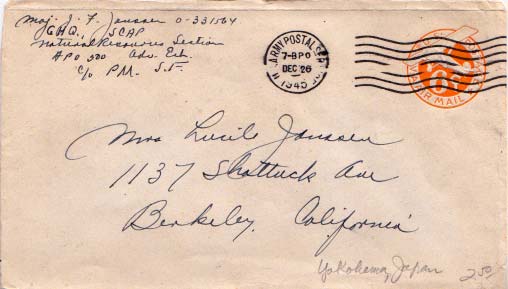 Maj. J. F. Janssen O-331564
G.H.Q. SCAP
Natural Resources Section
APO 500 Adv. Ech.
c/o P.M. S.F.
U.S. ARMY POSTAL SERVICE
7-8 PM
DEC 26
1945
AIR MAIL
6
Mrs Lucile Janssen
1137 Shattuck Ave
Berkeley, California
Yokohama, Japan
2.50